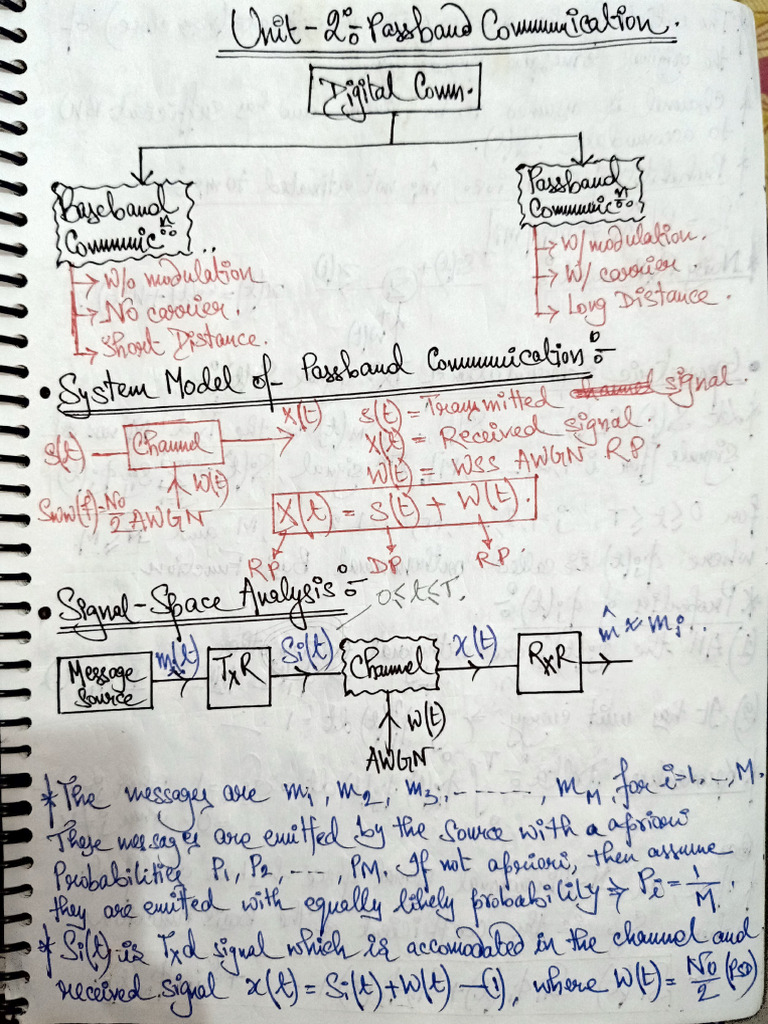 Unit-2 : Passband Communication.
Digital Comm.
Baseband
Communicⁿ..
Passband
Communicⁿ..
→ W/o modulation
→ No carrier.
→ Short Distance.
→ W/ modulation.
→ W/ carrier.
→ Long Distance.
• System Model of Passband Communication :-
s(t) Channel x(t)
W(t)
Sww(f)=No/2 AWGN
s(t) = Transmitted signal.
x(t) = Received signal
W(t) = WSS AWGN RP
X(t) = s(t) + W(t).
RP DP RP
• Signal-Space Analysis :-
0≤t≤T.
Message Source mi(t) TxR Si(t) Channel x(t) RxR m̂ ≈ mi..
W(t)
AWGN
* The messages are m1, m2, m3, ------, mM, for i=1,..,M.
These messages are emitted by the source with a apriori
Probabilities P1, P2, ---, PM. If not apriori, then assume
they are emitted with equally likely probability ⇒ Pi = 1/M.
* Si(t) is Txd signal which is accomodated in the channel and
received signal x(t) = Si(t) + W(t) —(1), where W(t) = No/2 (PSD)